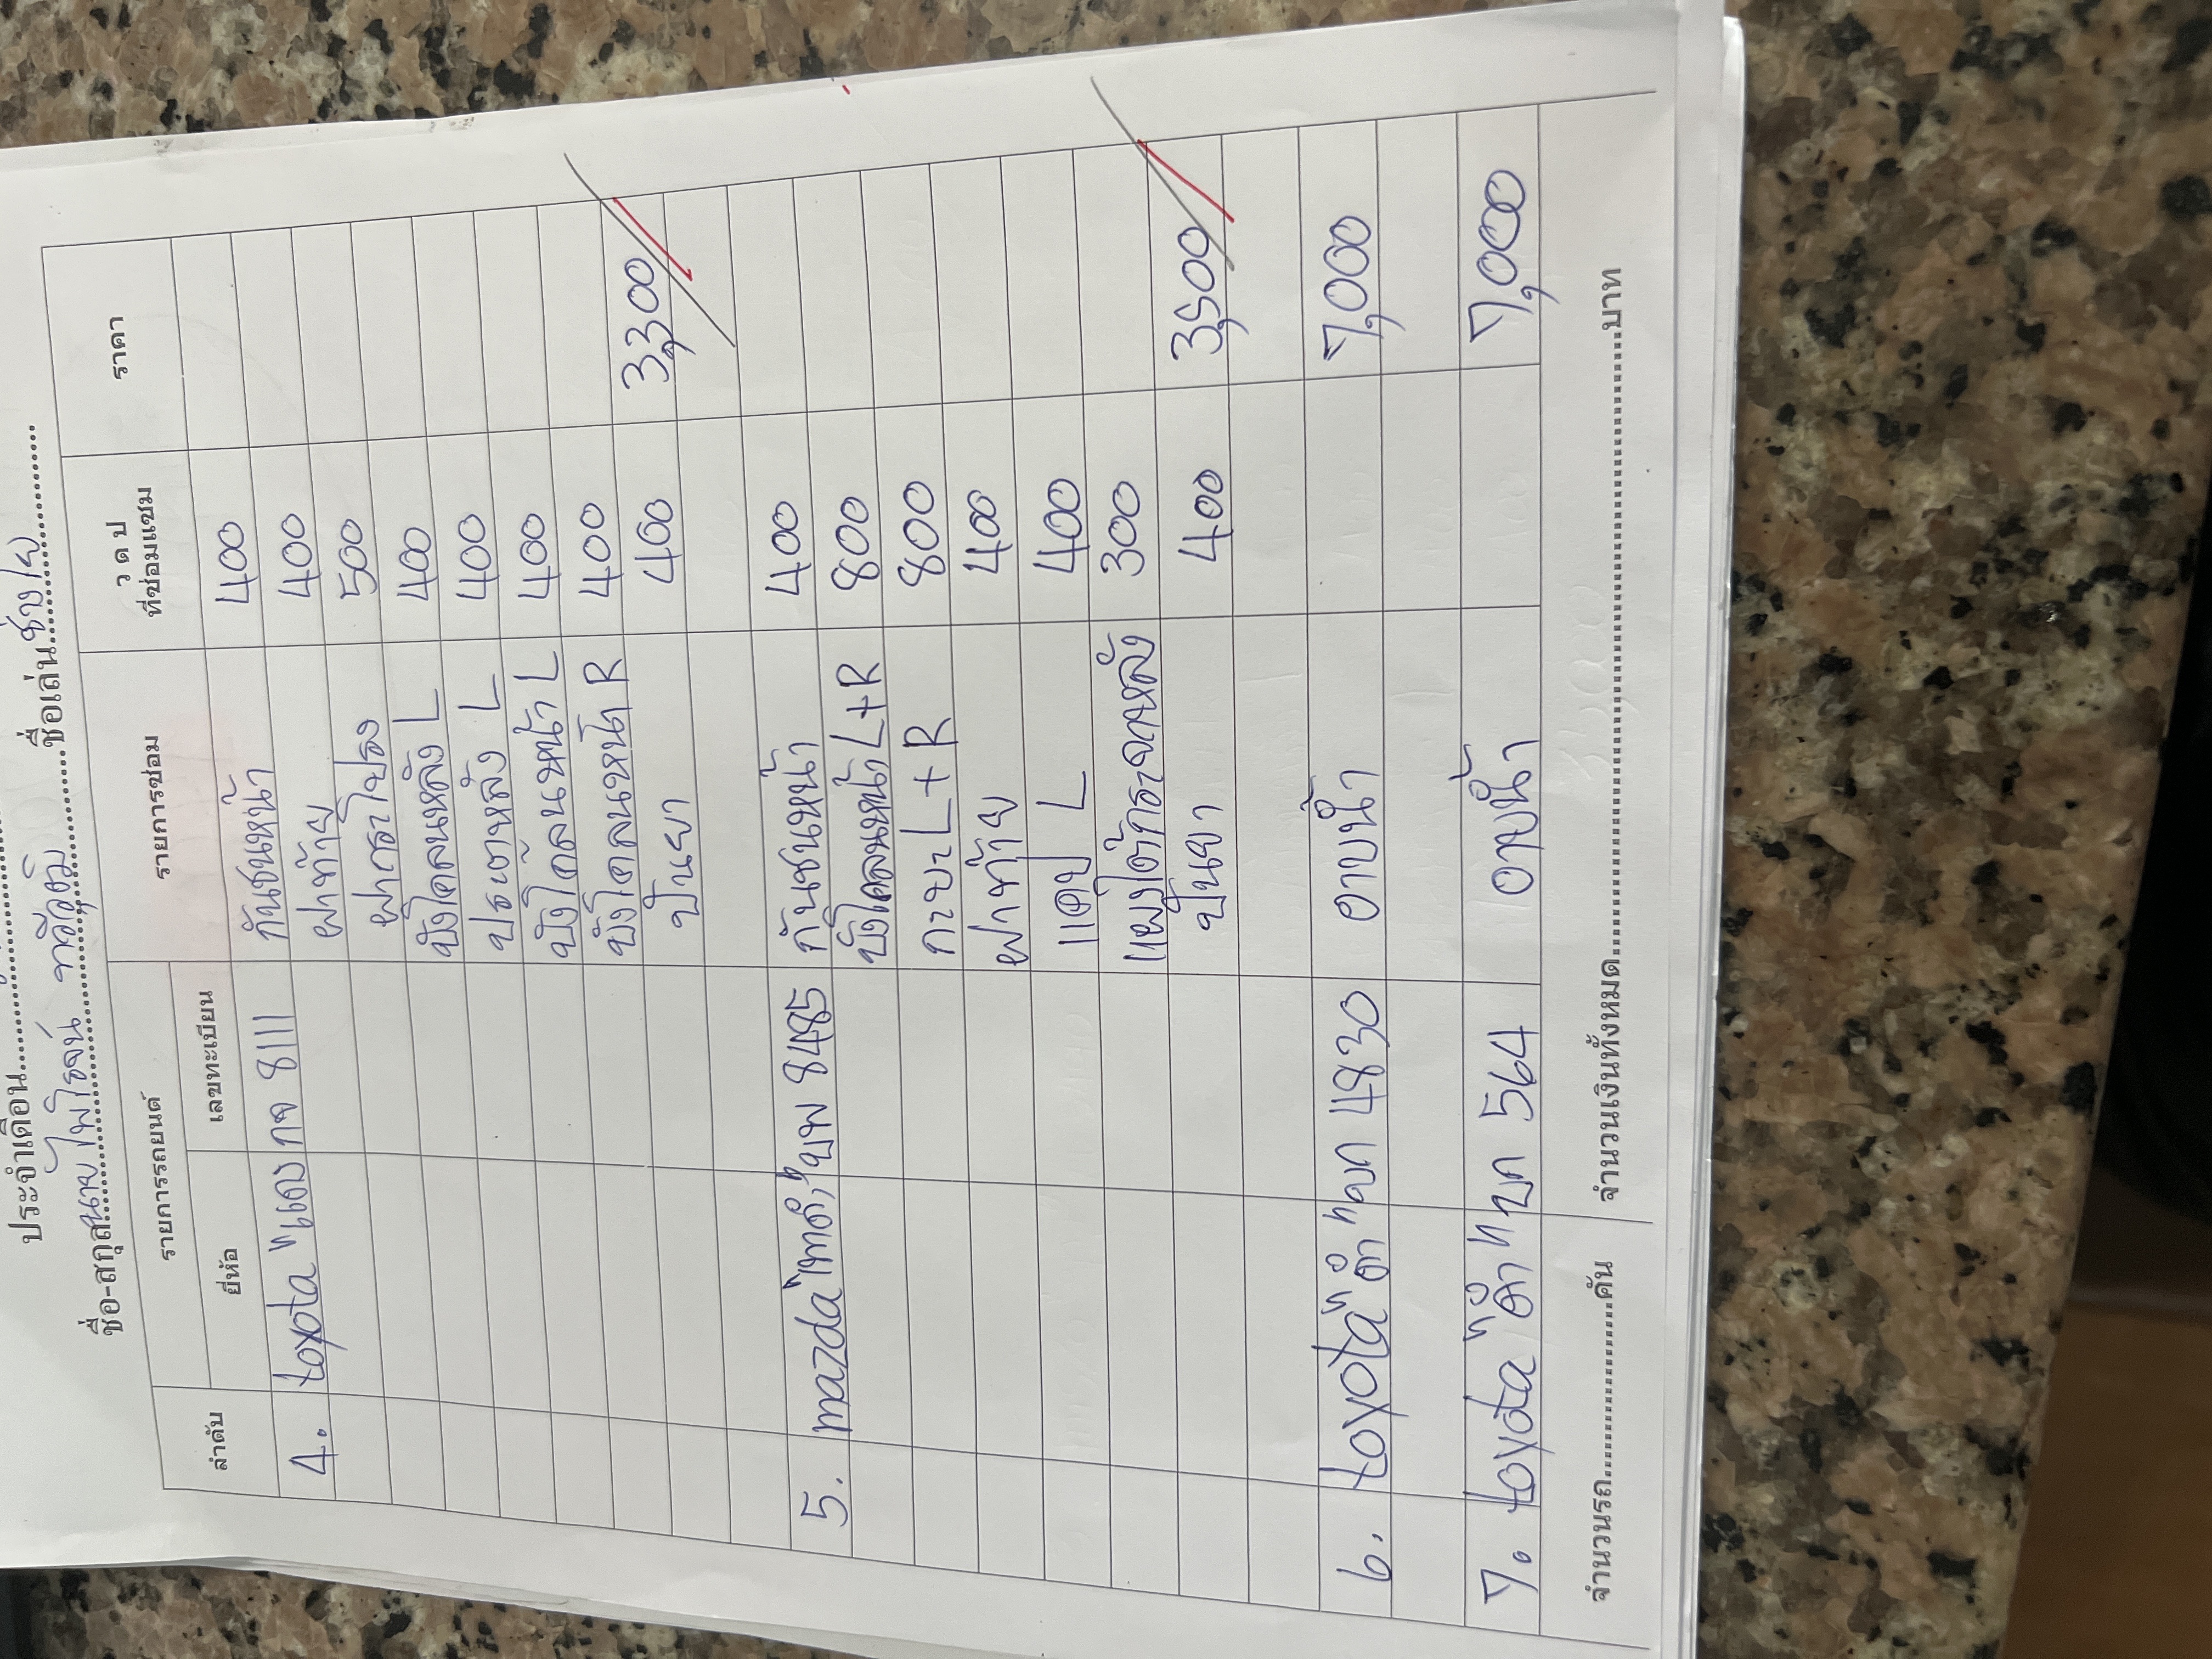 ประจำเดือน
ชื่อ-สกุล นาย ไพโรจน์ ชื่อเล่น ช่าง
ลำดับ รายการรถยนต์ รายการซ่อม ว ด ป ที่ซ่อมแซม ราคา
ยี่ห้อ เลขทะเบียน
4. toyota "แดง กจ 8111 กันชนหน้า 400
ฝาท้าย 400
ฝากระโปรง 500
บังโคลนหลัง L 400
ประตูหลัง L 400
บังโคลนหน้า L 400
บังโคลนหน้า R 400
ปั่นยา 400 3,300
5. mazda "เทาดำ" บพ 8485 กันชนหน้า 400
บังโคลนหน้า L+R 800
กาบ L+R 800
ฝาท้าย 400
แคป L 400
แผงใต้กระจกหลัง 300
ปั่นยา 400 3,500
6. toyota "ดำ" บก 4830 อาบน้ำ 7,000
7. toyota "ดำ" บก 564 อาบน้ำ 7,000
จำนวนรถ คัน จำนวนเงินทั้งหมด บาท